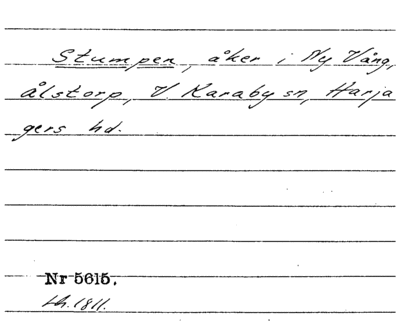 Stumpen, åker i Ny Vång,
Ålstorp, V Karaby sn, Harja
gers hd.
Nr 5615.
Lh. 1811.